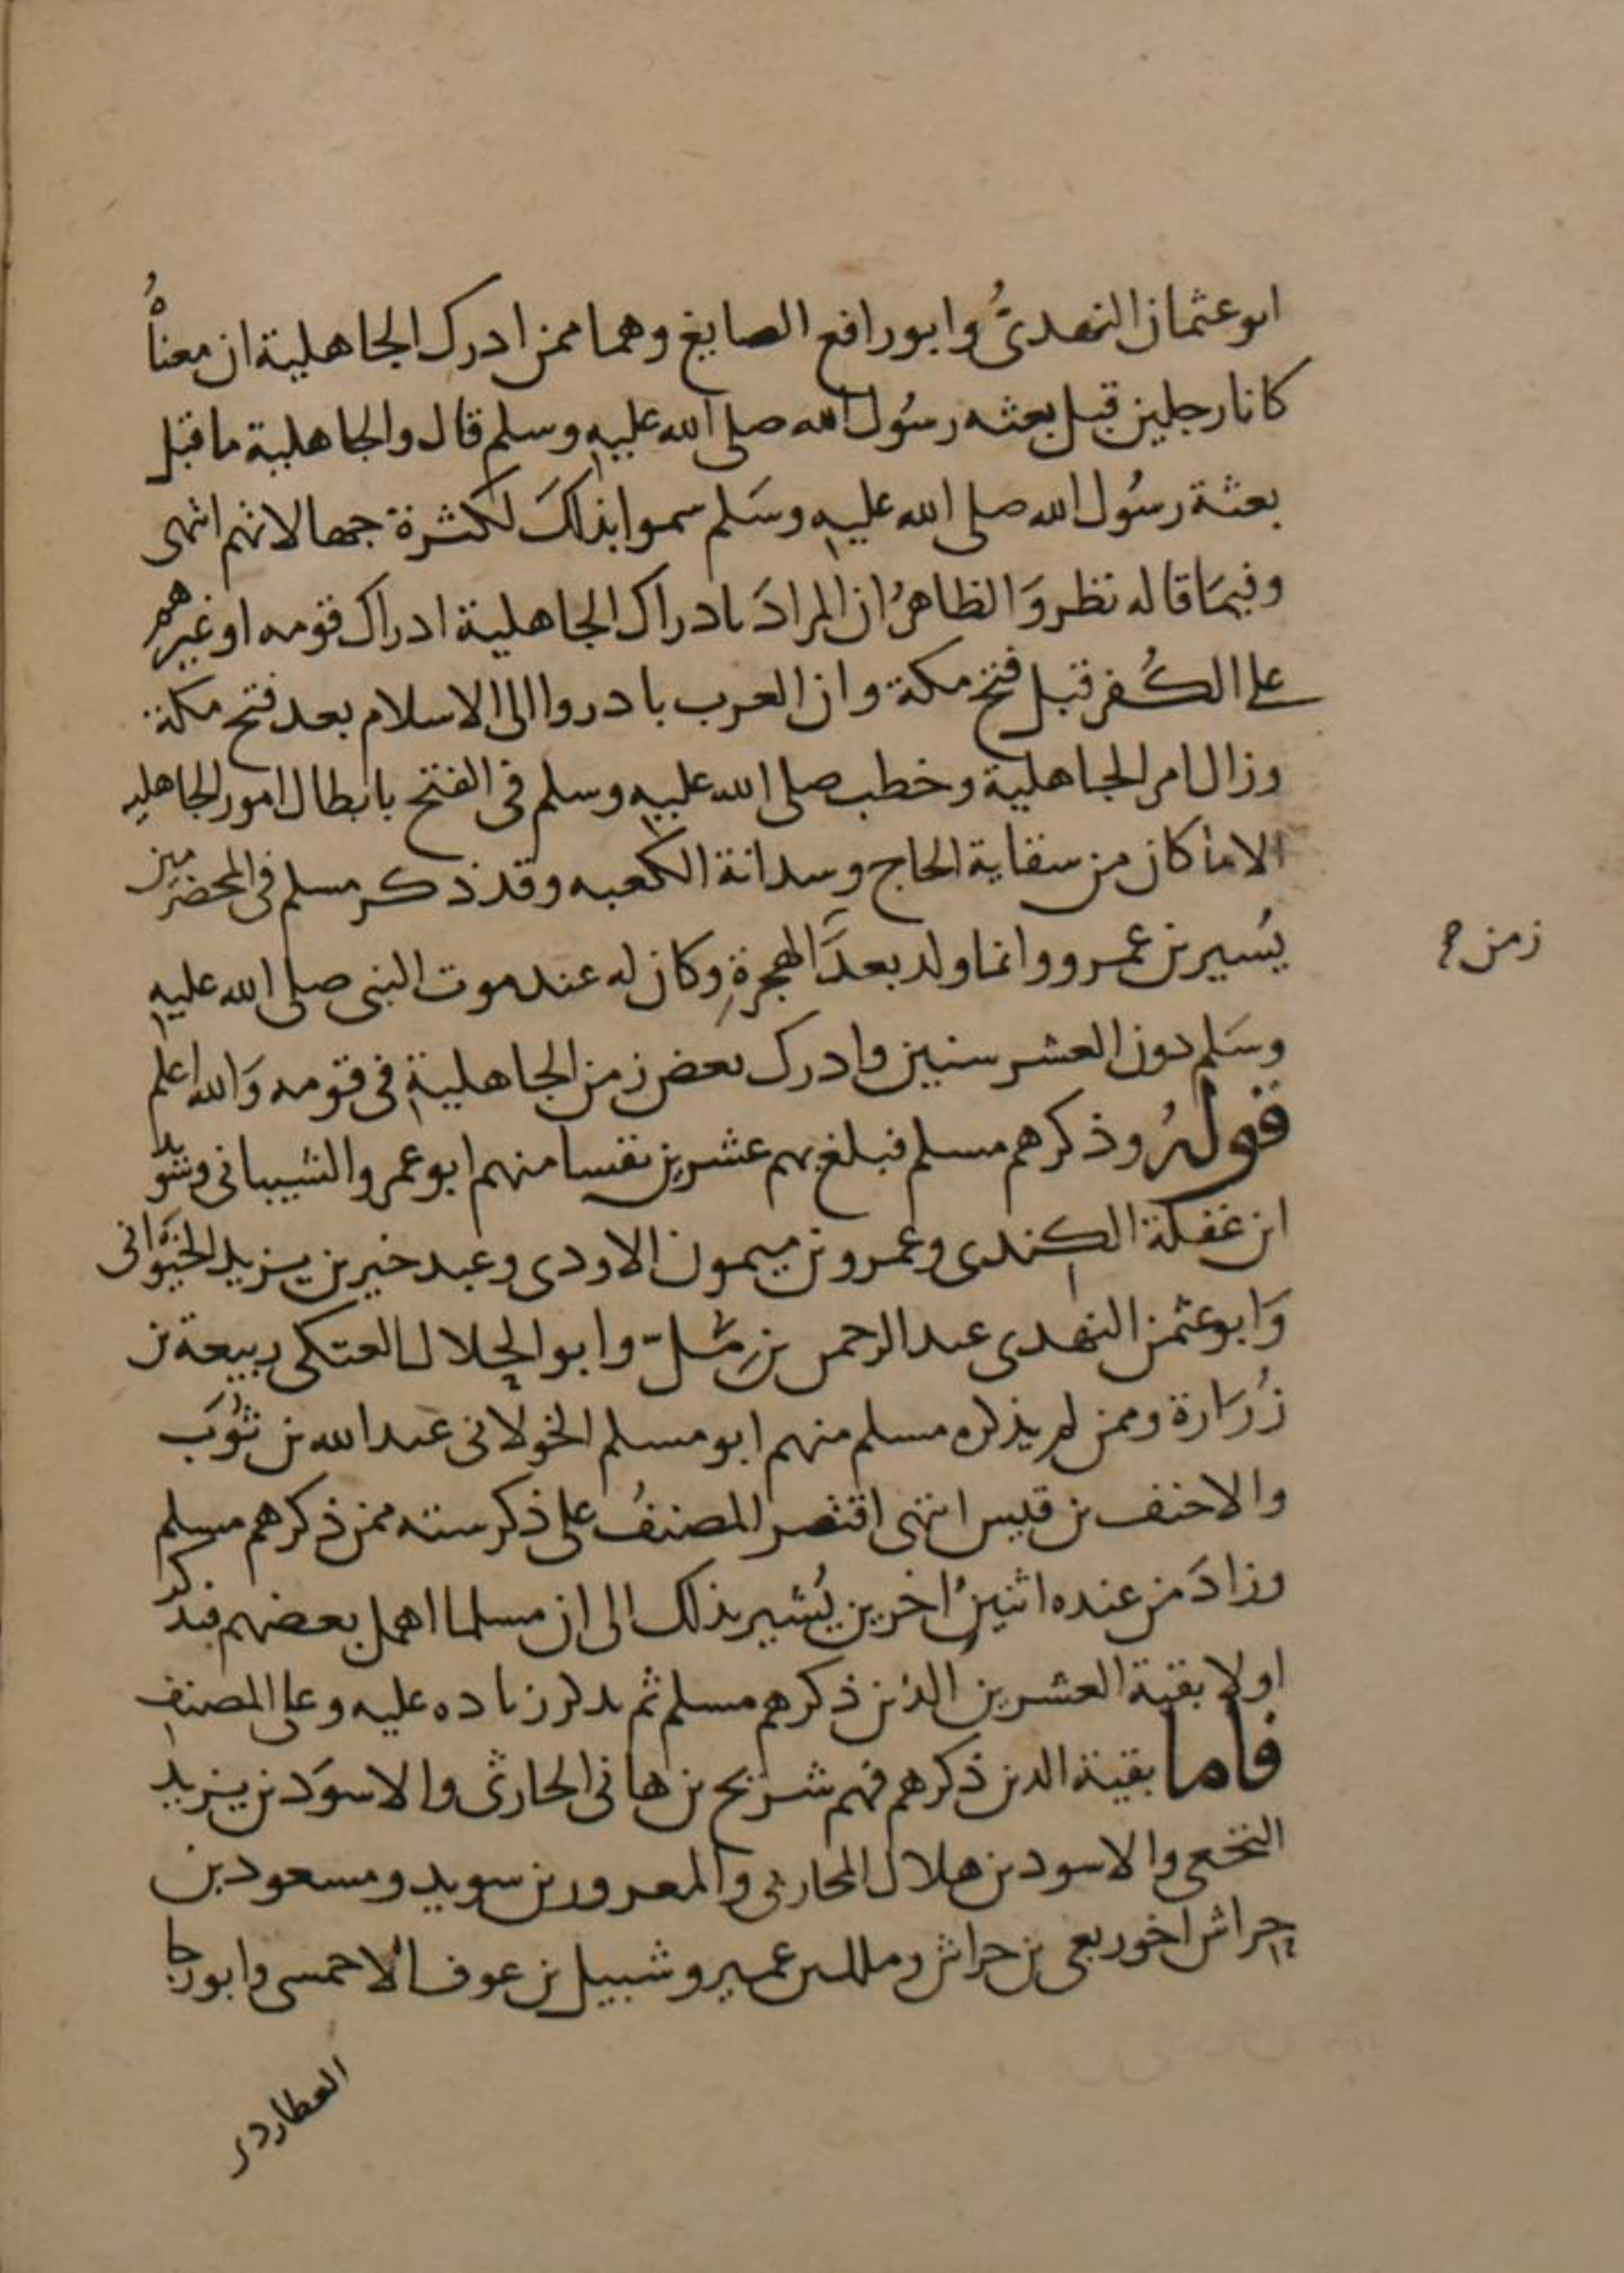 ابو عثمان النهدىُّ وابو رافع الصايغ وهما ممن ادرك الجاهلية ان معناهُ
كانا رجلين قبل بعثه رسُول الله صلى الله عليه وسلم قال والجاهلية ما قبل
بعثة رسُول الله صلى الله عليه وسَلم سموا بذلكَ لكثرة جهالاتهم انتهى
وفيمَا قاله نظر وَالظاهرُ ان المرادَ بادراك الجاهلية ادراك قومه او غيرهم
على الكُفر قبل فتح مكة وان العرب بادروا الى الاسلام بعد فتح مكة
وزال امر الجاهلية وخطب صلى الله عليه وسلم فى الفتح بابطال امور الجاهليه
الا ما كان من سقاية الحاج وسدانة الكعبه وقد ذكر مسلم فى المخضرمين
يُسير بن عمرو وانما ولد بعدَ الهجرةِ وكان له عند موت النبى صلى الله عليه
زمن
وسَلم دون العشر سنين فادرك بعض زمن الجاهلية فى قومه وَالله اعلم
قولهُ وذكرهم مسلم فبلغ بهم عشرين نفسا منهم ابو عمرو الشيبانى وسُويد
ابن غفَلة الكندى وعمرو بن ميمون الاودى وعبد خير بن يزيد الخيوَانى
وَابو عثمن النهدى عبد الرحمن بن مُلّ وابو الحلال العتكى ربيعة بن
زُرَارة وممن لم يذكره مسلم منهم ابو مسلم الخولانى عبد الله بن ثُوَب
والاحنف بن قيس انتهى اقتصر المصنفُ على ذكر سته ممن ذكرهم مسلم
وزادَ من عنده اثنين اخرين يُشير بذلك الى ان مسلما اهمل بعضهم فنذكر
اولا بقية العشرين الذين ذكرهم مسلم ثم نذكر زياده عليه وعلى المصنف
فاما بقية الذين ذكرهم فهم شريح بن هانى الحارثى والاسوَد بن يزيد
النخعى والاسود بن هلال المحاربى والمعرور بن سويد ومسعود بن
حراش اخو ربعى بن حراش ومالك بن عمير وشبيل بن عوف الاحمسى وابو رجا
العطاردى